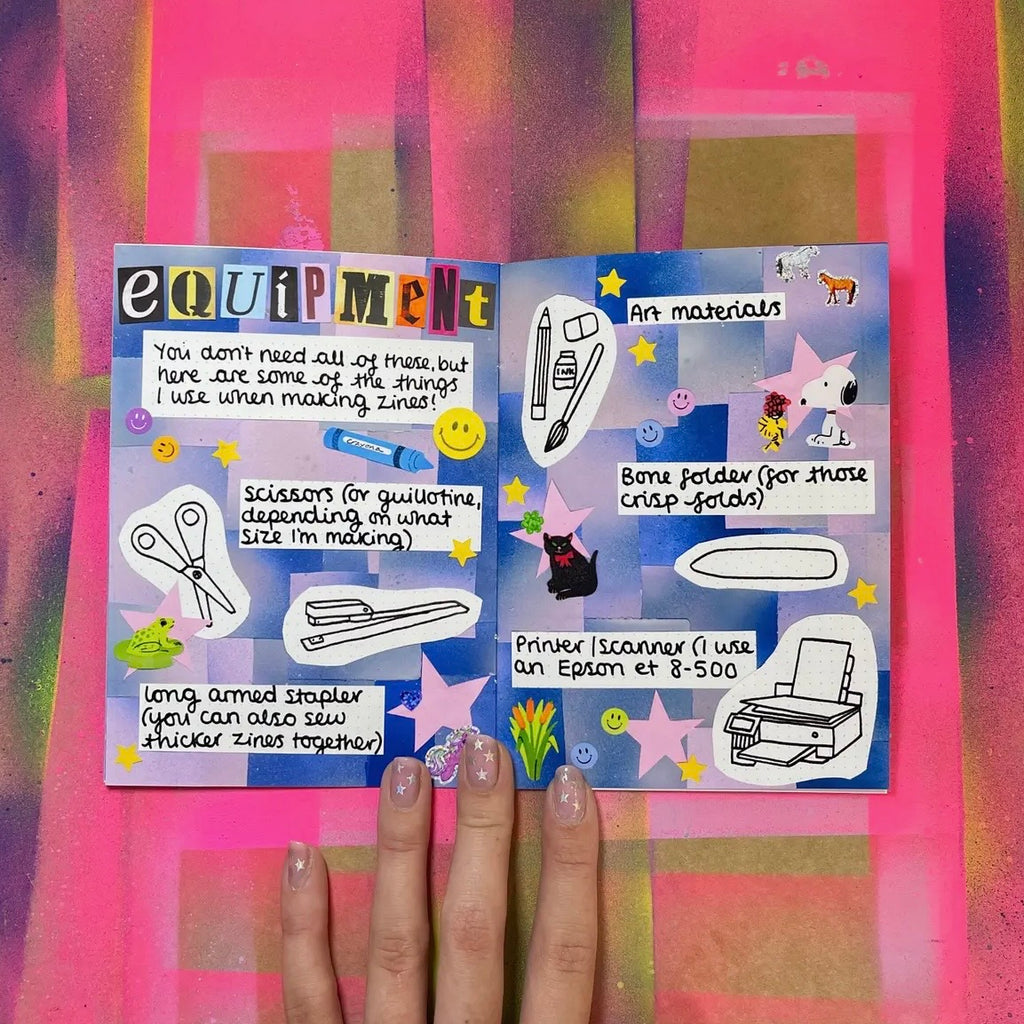 eQUíPMeNt
You don't need all of these, but
here are some of the things
I use when making zines!
crayons
scissors (or guillotine,
depending on what
size I'm making)
long armed stapler
(you can also sew
thicker zines together)
Art materials
INK
Bone folder (for those
crisp folds)
Printer/scanner (I use
an Epson et 8-500